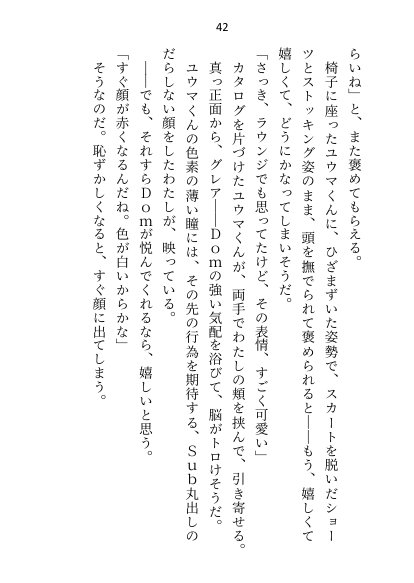 42
らいね」と、また褒めてもらえる。
椅子に座ったユウマくんに、ひざまずいた姿勢で、スカートを脱いだショー
ツとストッキング姿のまま、頭を撫でられて褒められると――もう、嬉しくて
嬉しくて、どうにかなってしまいそうだ。
「さっき、ラウンジでも思ってたけど、その表情、すごく可愛い」
カタログを片づけたユウマくんが、両手でわたしの頬を挟んで、引き寄せる。
真っ正面から、グレア――Ｄｏｍの強い気配を浴びて、脳がトロけそうだ。
ユウマくんの色素の薄い瞳には、その先の行為を期待する、Ｓｕｂ丸出しの
だらしない顔をしたわたしが、映っている。
――でも、それすらＤｏｍが悦んでくれるなら、嬉しいと思う。
「すぐ顔が赤くなるんだね。色が白いからかな」
そうなのだ。恥ずかしくなると、すぐ顔に出てしまう。